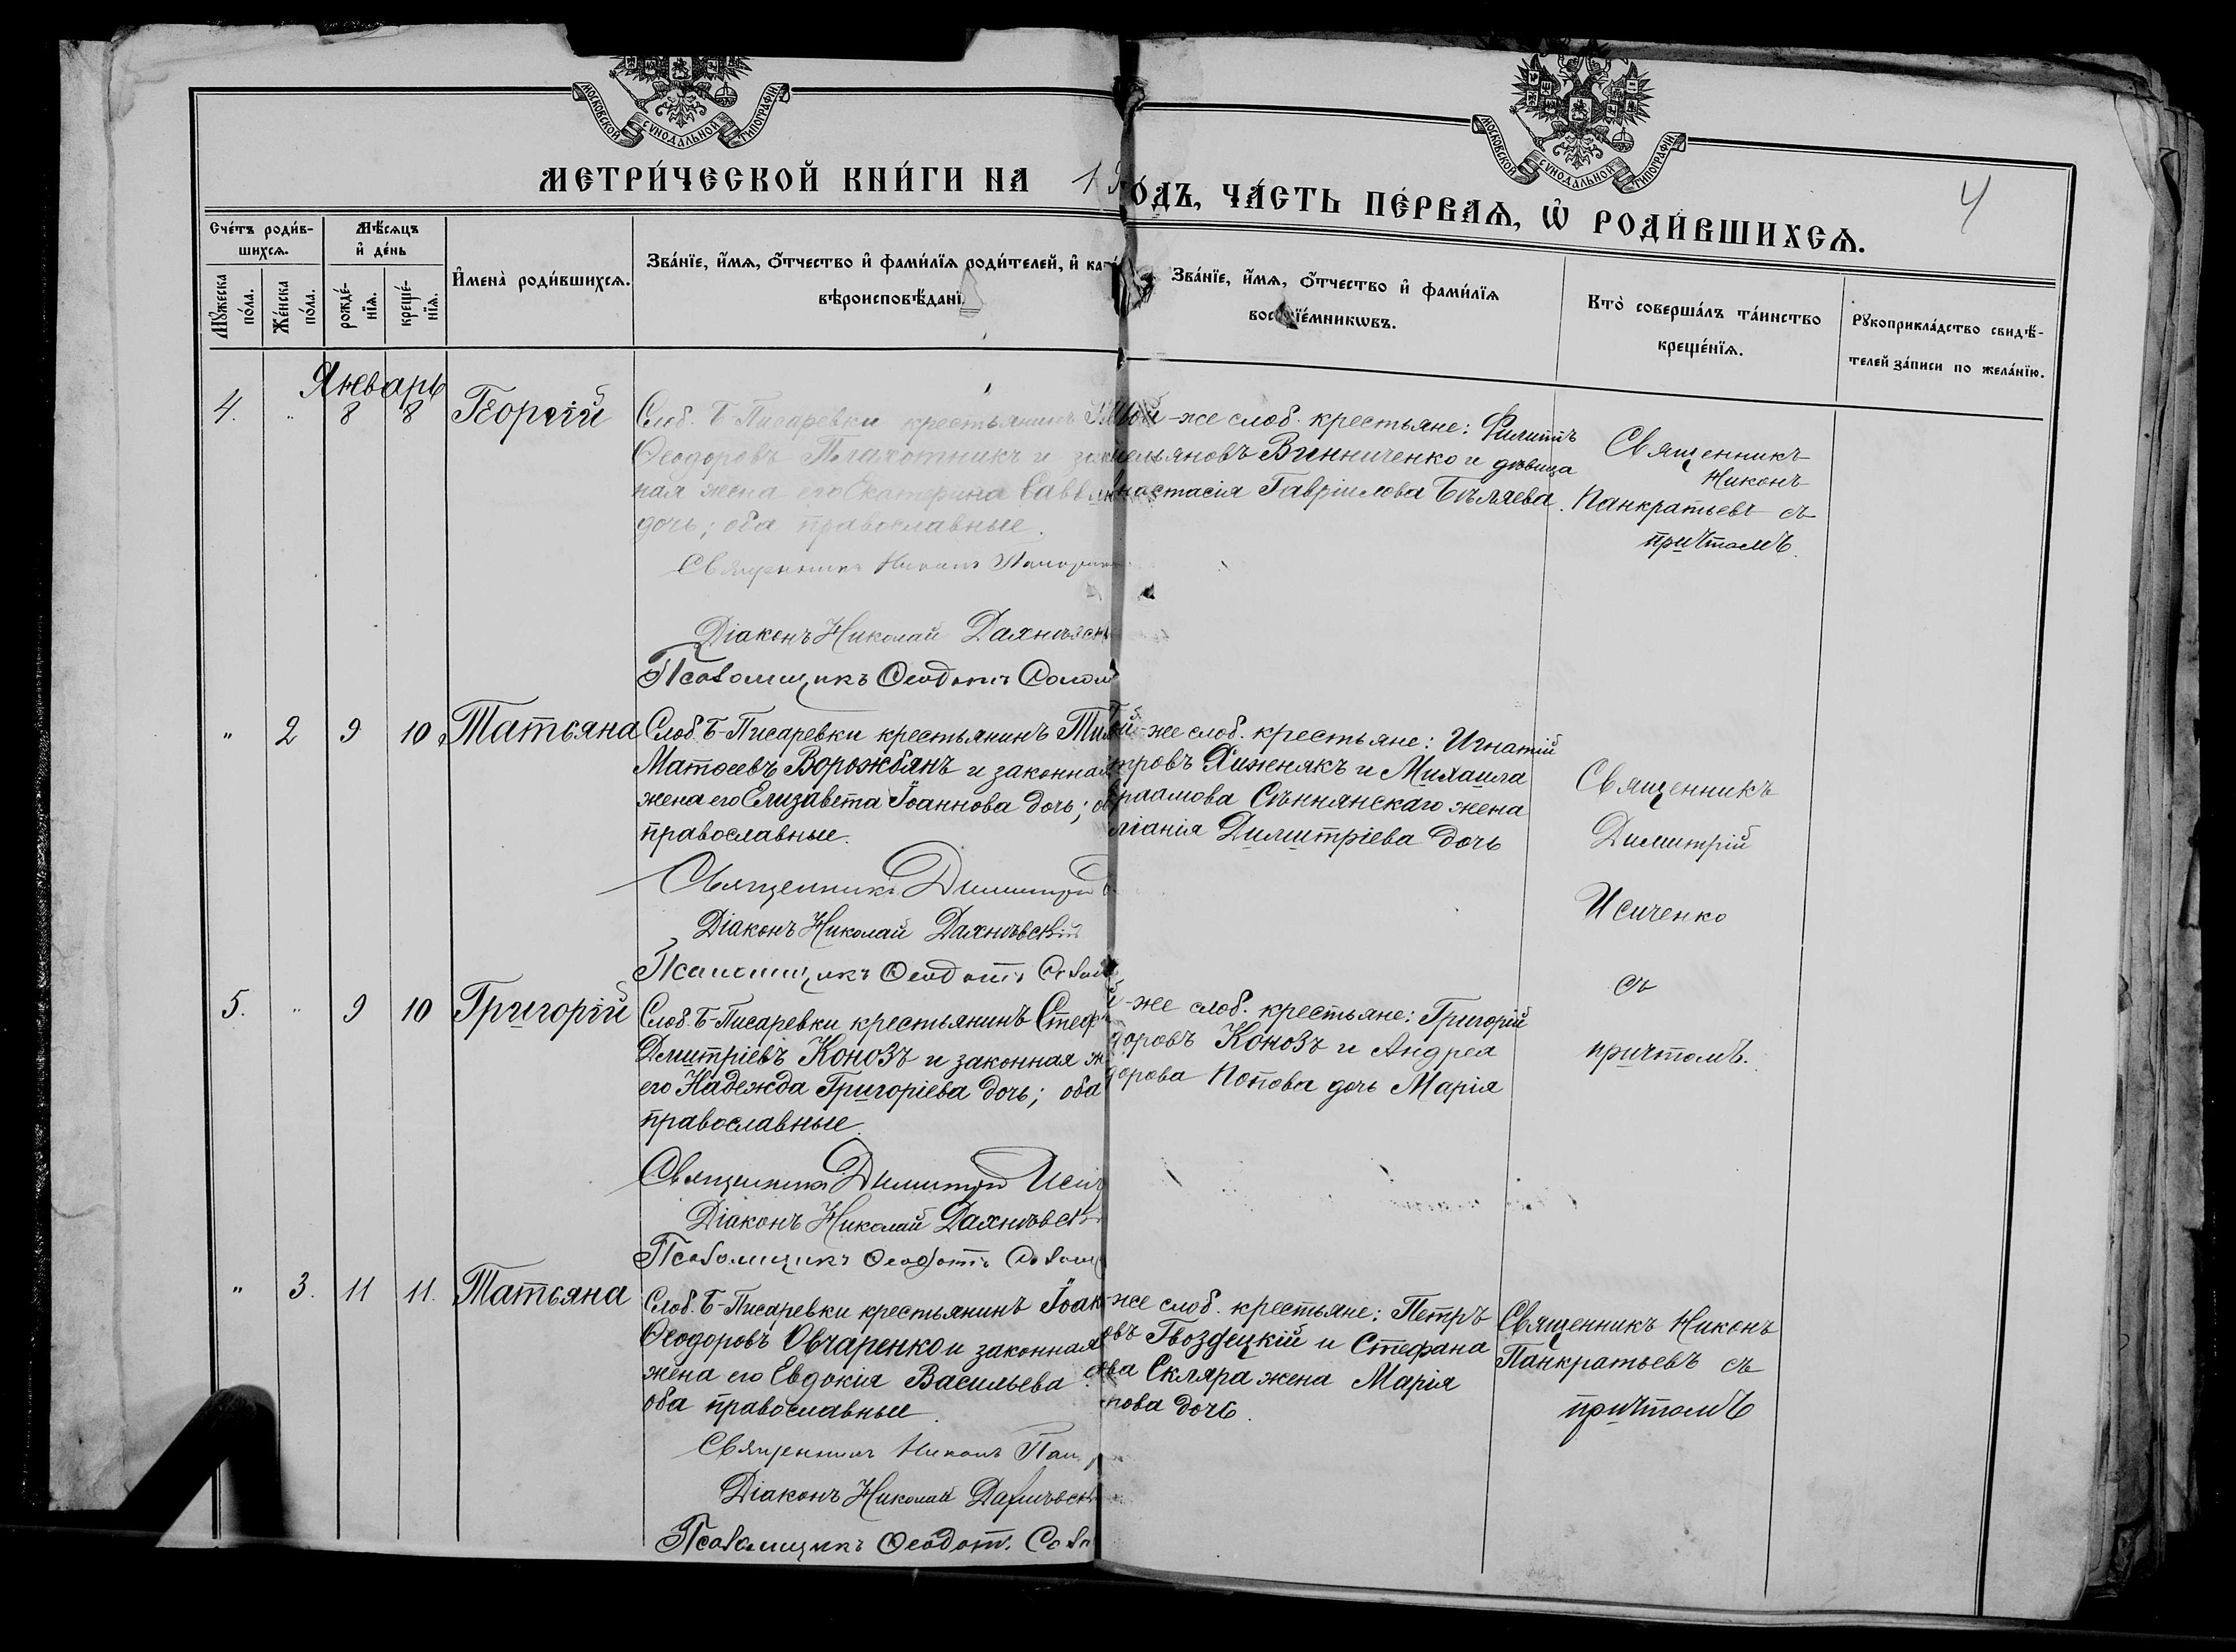 МОСКОВСКОЙ СѴНОДАЛЬНОЙ ТИПОГРАФІИ.
МОСКОВСКОЙ СѴНОДАЛЬНОЙ ТИПОГРАФІИ.
МЕТРИ́ЧЕСКОЙ КНИ́ГИ НА 19
О́ДЪ, ЧА́СТЬ ПЕ́РВАѦ, Ѡ҆ РОДИ́ВШИХСѦ.
4
Сче́тъ роди́в-
шихсѧ.
Мꙋ́жеска по́ла.
Же́нска по́ла.
Мѣ́сѧцъ
и҆ де́нь
рожде́-
нїѧ.
креще́-
нїѧ.
И҆мена̀ роди́вшихсѧ.
Зва́нїе, и҆́мѧ, ѻ҆́тчество и҆ фами́лїѧ роди́телей, и҆
вѣроисповѣ́данї
Зва́нїе, и҆́мѧ, ѻ҆́тчество и҆ фами́лїѧ
вос їе́мникѡвъ.
Кто̀ соверша́лъ та́инство
креще́нїѧ.
Рꙋкоприкла́дство свидѣ́-
телей за́писи по жела́нїю.
Январь
4. " 8 8 Георгій
Слоб. Б-Писаревки крестьянинъ
Ѳеодоровъ Плахотникъ и
ная жена его Екатерина
дочь; оба православные.
Священникъ Никонъ
Діаконъ Николай
Псаломщикъ Ѳеодотъ
-же слоб. крестьяне: Филиппъ
ельяновъ Винниченко и дѣвица
настасія Гавріилова Бѣляева.
Священникъ
Никонъ
Панкратьевъ съ
причтомъ.
" 2 9 10 Татьяна
Слоб. Б-Писаревки крестьянинъ
Матѳеевъ Ворожбянъ и законная
жена его Елизавета Іоаннова дочь;
православные.
Священникъ Димитрій
Діаконъ Николай
Псаломщикъ Ѳеодотъ
-же слоб. крестьяне: Игнатій
тровъ Яиженякъ и Михаила
враамова Сѣннянскаго жена
ліанія Димитріева дочь
Священникъ
Димитрій
Исиченко
съ
причтомъ.
5. " 9 10 Григорій
Слоб. Б-Писаревки крестьянинъ Стеф
Дмитріевъ Конозъ и законная ж
его Надежда Григоріева дочь; оба
православные.
Священникъ Димитрій Исич
Діаконъ Николай
Псаломщикъ Ѳеодотъ
й-же слоб. крестьяне: Григорій
доровъ Конозъ и Андрея
дорова Попова дочь Марія
" 3. 11 11. Татьяна
Слоб. Б-Писаревки крестьянинъ Іоан
Ѳеодоровъ Овчаренко и законная
жена его Евдокія Васильева
оба православные.
Священникъ Никонъ Пан
Діаконъ Николай
Псаломщикъ Ѳеодотъ
-же слоб. крестьяне: Петръ
овъ Гвоздецкій и Стефана
ова Скляра жена Марія
пова дочь.
Священникъ Никонъ
Панкратьевъ съ
причтомъ